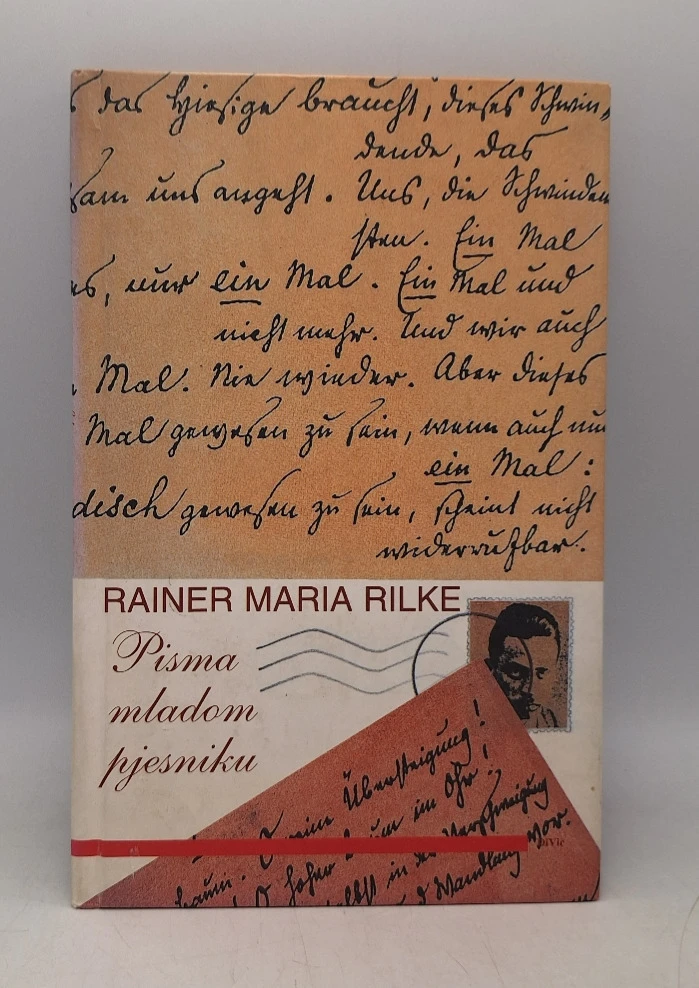 das Hiesige braucht, dieses Schwin=
dende, das
sam uns angeht. Uns, die Schwinden
sten. Ein Mal
es, nur ein Mal. Ein Mal und
nicht mehr. Und wir auch
Mal. Nie wieder. Aber dieses
Mal gewesen zu sein, wenn auch nur
ein Mal:
disch gewesen zu sein, scheint nicht
widerrufbar.
RAINER MARIA RILKE
Pisma
mladom
pjesniku
reine Übersteigung!
O hoher Baum im Ohr!
selbst in der Verschweigung
d Wandlung vor.